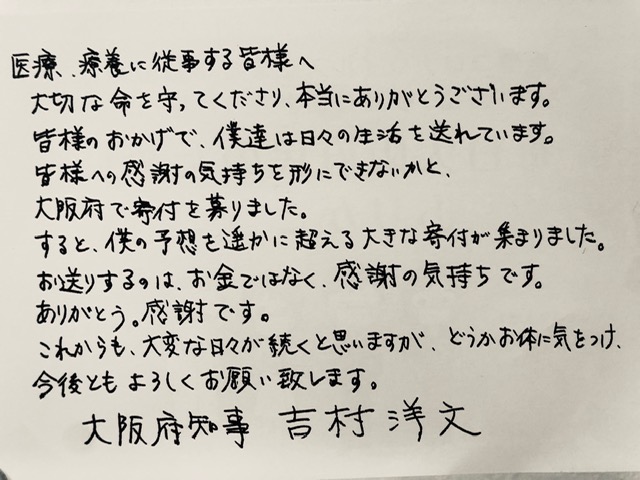 医療、療養に従事する皆様へ
大切な命を守ってくださり、本当にありがとうございます。
皆様のおかげで、僕達は日々の生活を送れています。
皆様への感謝の気持ちを形にできないかと、
大阪府で寄付を募りました。
すると、僕の予想を遥かに超える大きな寄付が集まりました。
お送りするのは、お金ではなく、感謝の気持ちです。
ありがとう。感謝です。
これからも、大変な日々が続くと思いますが、どうかお体に気をつけ、
今後ともよろしくお願い致します。
大阪府知事 吉村洋文